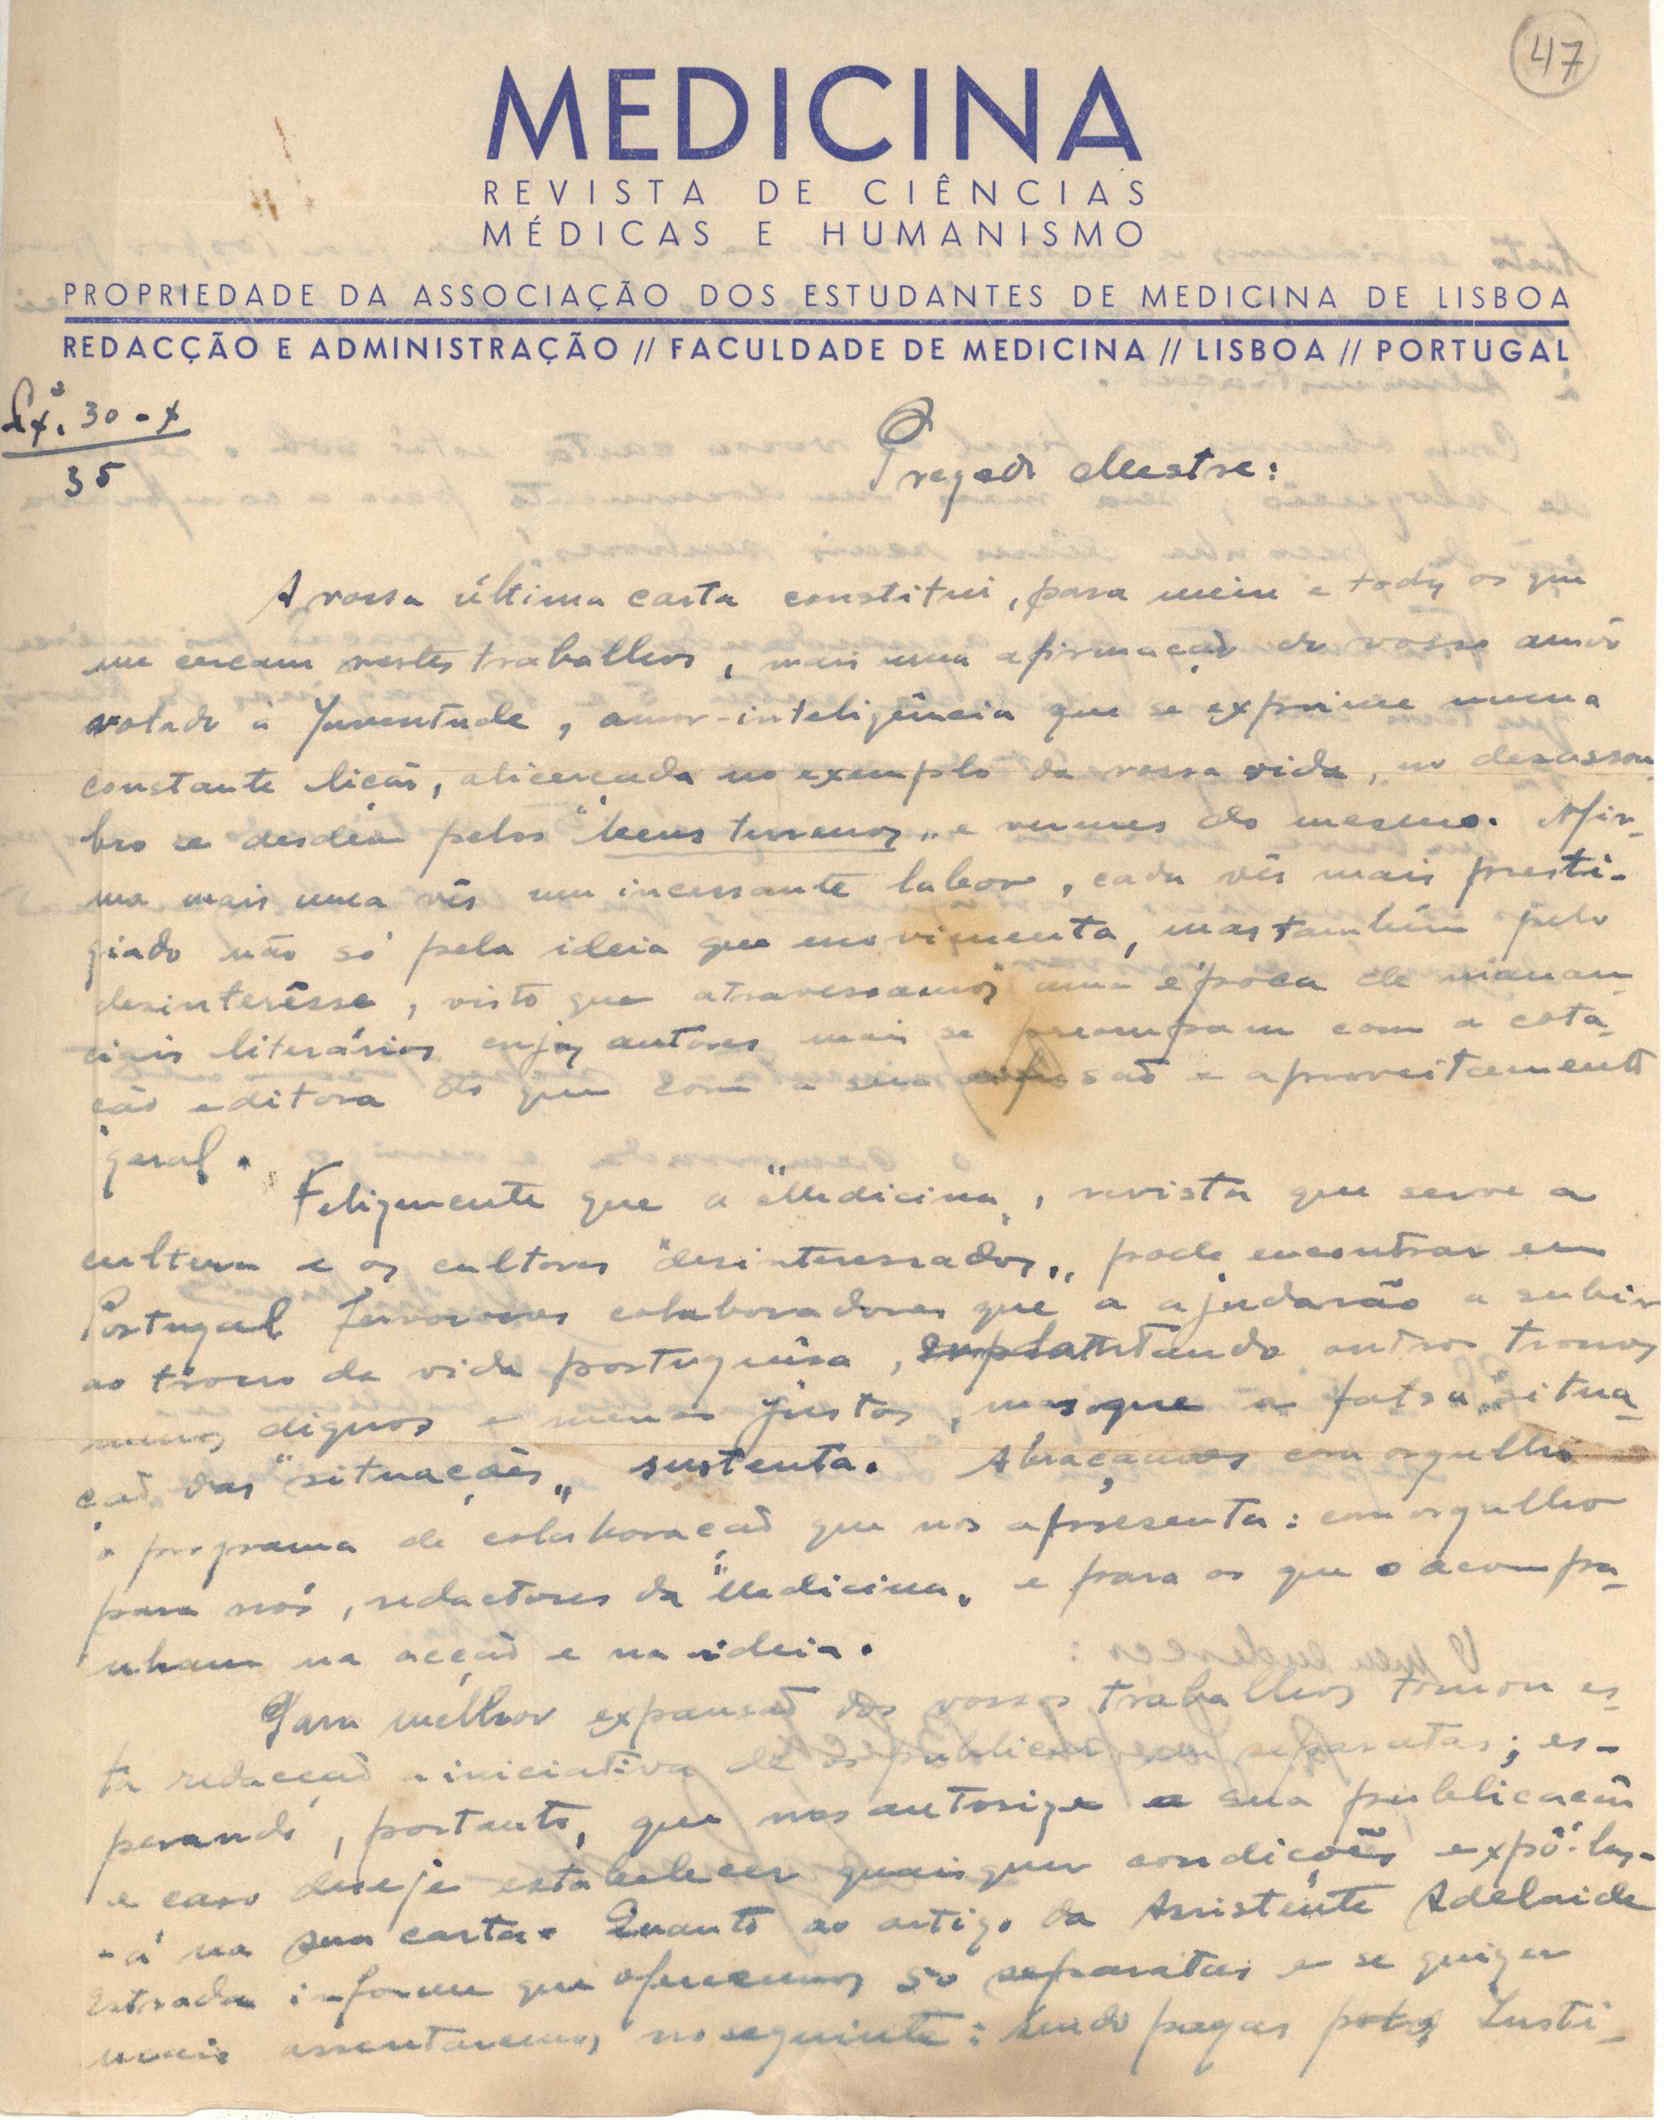 47
MEDICINA
REVISTA DE CIÊNCIAS
MÉDICAS E HUMANISMO
PROPRIEDADE DA ASSOCIAÇÃO DOS ESTUDANTES DE MEDICINA DE LISBOA
REDACÇÃO E ADMINISTRAÇÃO // FACULDADE DE MEDICINA // LISBOA // PORTUGAL
Lxª. 30-X
35
Presado Mestre:
A vossa última carta constitui, para mim e todos os que
me cercam nestes trabalhos, mais uma afirmação do vosso amôr
votado à Juventude, amor-inteligência que se exprime numa
constante lição, alicerçada no exemplo da vossa vida, no desassom-
bro e desdém pelos "bens terrenos" e vermes do mesmo. Afir-
ma mais uma vês um incessante labor, cada vês mais presti-
giado não só pela ideia que movimenta, mas também pelo
desinterêsse, visto que atravessamos uma época de manan-
ciais literários cujos autores mais se preocupam com a cota-
ção editora do que com a sua expansão e aproveitamento
geral.
Felizmente que a "Medicina", revista que serve a
cultura e os cultores "desinteressados", pode encontrar em
Portugal fervorosos colaboradores que a ajudarão a subir
ao trono da vida portuguêsa, suplantando outros tronos
menos dignos e menos justos, mas que a falsa "situa-
ção das "situações" sustenta. Abraçamos com orgulho
o programa de colaboração que nos apresenta: com orgulho
para nós, redactores da "Medicina" e para os que o acompa-
nham na acção e na ideia.
Para melhor expansão dos vossos trabalhos tomou es-
ta redacção a iniciativa de os publicar em separatas; es-
perando, portanto, que nos autorize a sua publicação
e caso deseje estabelecer quaisquer condições expô-las-
-á na sua carta. Quanto ao artigo da Assistente Adelaide
Estrada informe que oferecemos 50 separatas e se quizer
mais assentaremos no seguinte: sendo pagas pelo Insti-